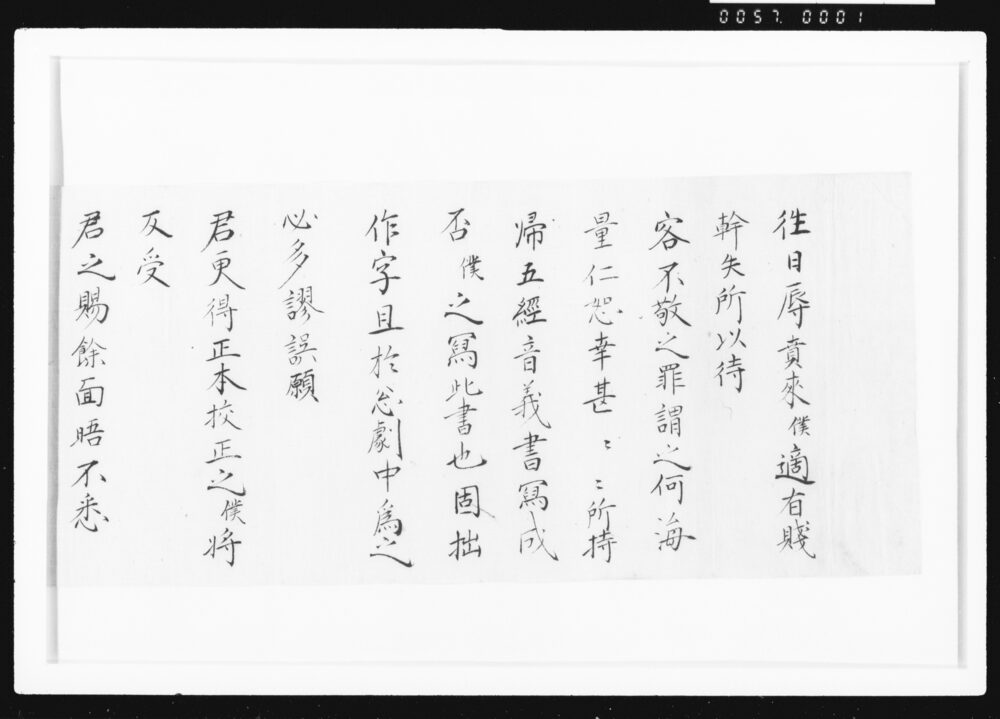 0057.0001
徃日辱賁來僕適有賤
幹失所以待
客不敬之罪謂之何海
量仁恕幸甚〻〻所持
帰五經音義書寫成
否僕之寫此書也固拙
作字且於怱劇中為之
必多謬誤願
君更得正本挍正之僕将
反受
君之賜餘面晤不悉